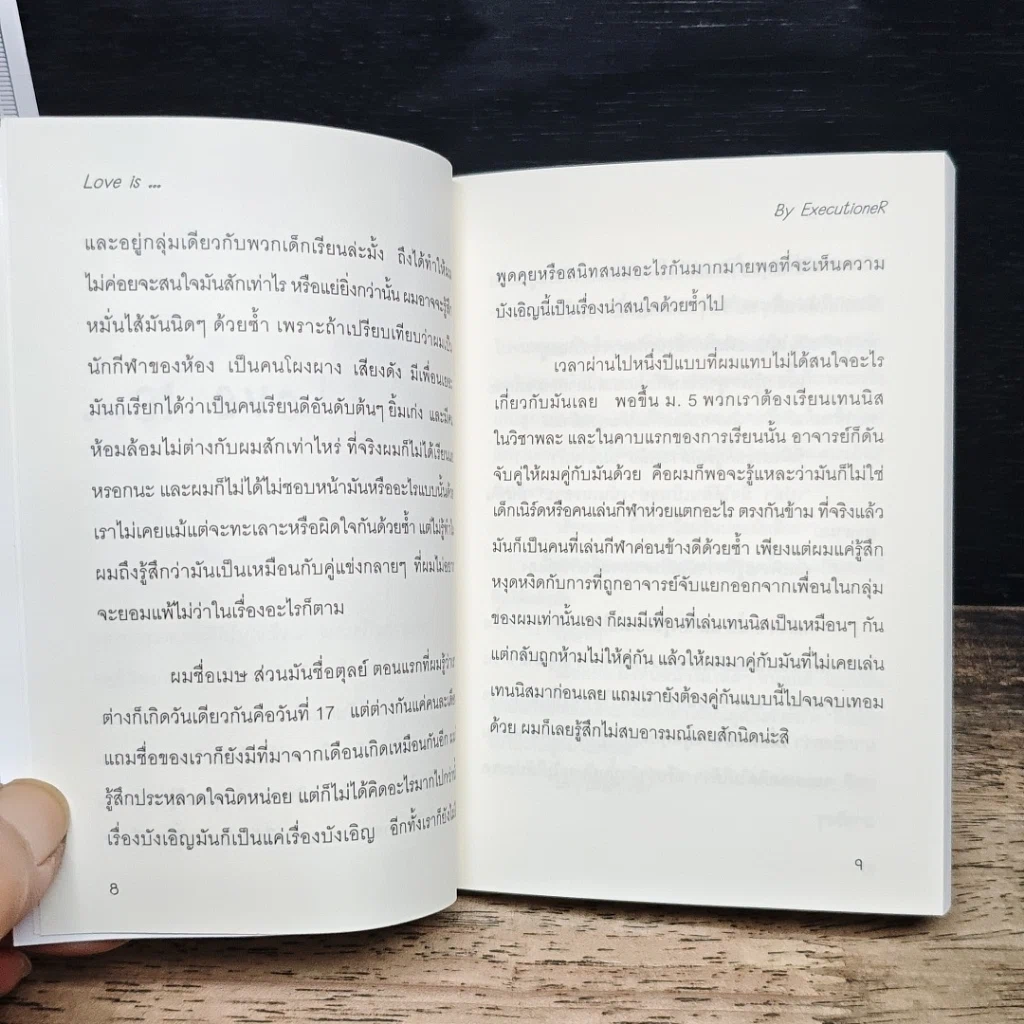 Love is ...
และอยู่กลุ่มเดียวกับพวกเด็กเรียนล่ะมั้ง ถึงได้ทำให้ผม
ไม่ค่อยจะสนใจมันสักเท่าไร หรือแย่ยิ่งกว่านั้น ผมอาจจะรู้สึก
หมั่นไส้มันนิดๆ ด้วยซ้ำ เพราะถ้าเปรียบเทียบว่าผมเป็น
นักกีฬาของห้อง เป็นคนโผงผาง เสียงดัง มีเพื่อน
มันก็เรียกได้ว่าเป็นคนเรียนดีอันดับต้นๆ ยิ้มเก่ง และมีคน
ห้อมล้อมไม่ต่างกับผมสักเท่าไหร่ ที่จริงผมก็ไม่ได้เรียน
หรอกนะ และผมก็ไม่ได้ไม่ชอบหน้ามันหรืออะไรแบบนั้นด้วย
เราไม่เคยแม้แต่จะทะเลาะหรือผิดใจกันด้วยซ้ำ แต่ไม่รู้ทำไม
ผมถึงรู้สึกว่ามันเป็นเหมือนกับคู่แข่งกลายๆ ที่ผมไม่อยาก
จะยอมแพ้ไม่ว่าในเรื่องอะไรก็ตาม
ผมชื่อเมษ ส่วนมันชื่อตุลย์ ตอนแรกที่ผมรู้ว่าเรา
ต่างก็เกิดวันเดียวกันคือวันที่ 17 แต่ต่างกันแค่คนละเดือน
แถมชื่อของเราก็ยังมีที่มาจากเดือนเกิดเหมือนกันอีก
รู้สึกประหลาดใจนิดหน่อย แต่ก็ไม่ได้คิดอะไรมากไปกว่านั้น
เรื่องบังเอิญมันก็เป็นแค่เรื่องบังเอิญ อีกทั้งเราก็ยังไม่
8
By ExecutioneR
พูดคุยหรือสนิทสนมอะไรกันมากมายพอที่จะเห็นความ
บังเอิญนี้เป็นเรื่องน่าสนใจด้วยซ้ำไป
เวลาผ่านไปหนึ่งปีแบบที่ผมแทบไม่ได้สนใจอะไร
เกี่ยวกับมันเลย พอขึ้น ม. 5 พวกเราต้องเรียนเทนนิส
ในวิชาพละ และในคาบแรกของการเรียนนั้น อาจารย์ก็ดัน
จับคู่ให้ผมคู่กับมันด้วย คือผมก็พอจะรู้แหละว่ามันก็ไม่ใช่
เด็กเนิร์ดหรือคนเล่นกีฬาห่วยแตกอะไร ตรงกันข้าม ที่จริงแล้ว
มันก็เป็นคนที่เล่นกีฬาค่อนข้างดีด้วยซ้ำ เพียงแต่ผมแค่รู้สึก
หงุดหงิดกับการที่ถูกอาจารย์จับแยกออกจากเพื่อนในกลุ่ม
ของผมเท่านั้นเอง ก็ผมมีเพื่อนที่เล่นเทนนิสเป็นเหมือนๆ กัน
แต่กลับถูกห้ามไม่ให้คู่กัน แล้วให้ผมมาคู่กับมันที่ไม่เคยเล่น
เทนนิสมาก่อนเลย แถมเรายังต้องคู่กันแบบนี้ไปจนจบเทอม
ด้วย ผมก็เลยรู้สึกไม่สบอารมณ์เลยสักนิดน่ะสิ
9